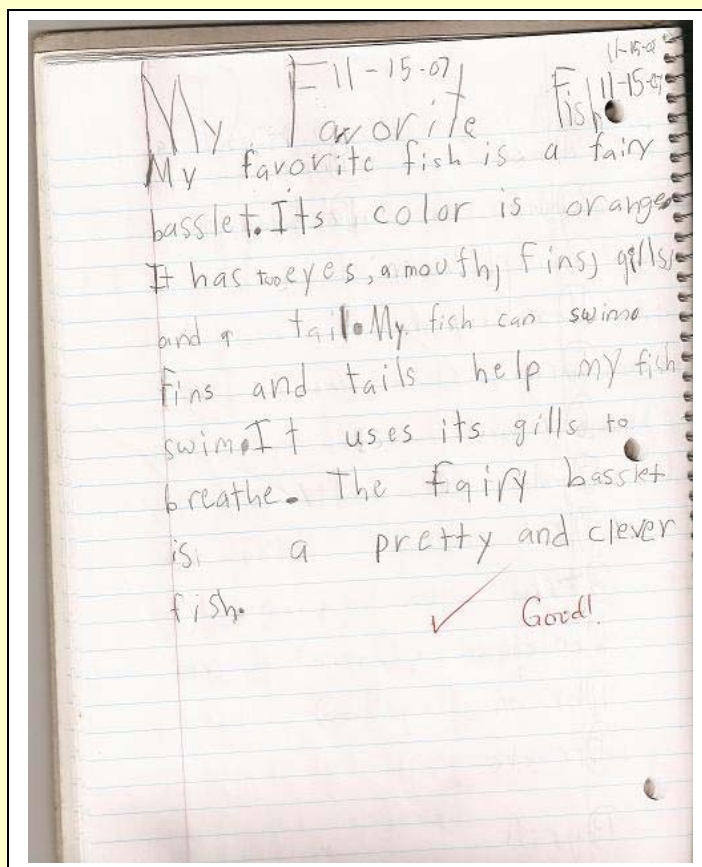 11-15-07
11-15-07
11-15-07
My Favorite Fish
My favorite fish is a fairy
basslet. Its color is orange.
It has two eyes, a mouth, fins, gills,
and a tail. My fish can swim.
Fins and tails help my fish
swim. It uses its gills to
breathe. The fairy basslet
is a pretty and clever
fish.
Good!